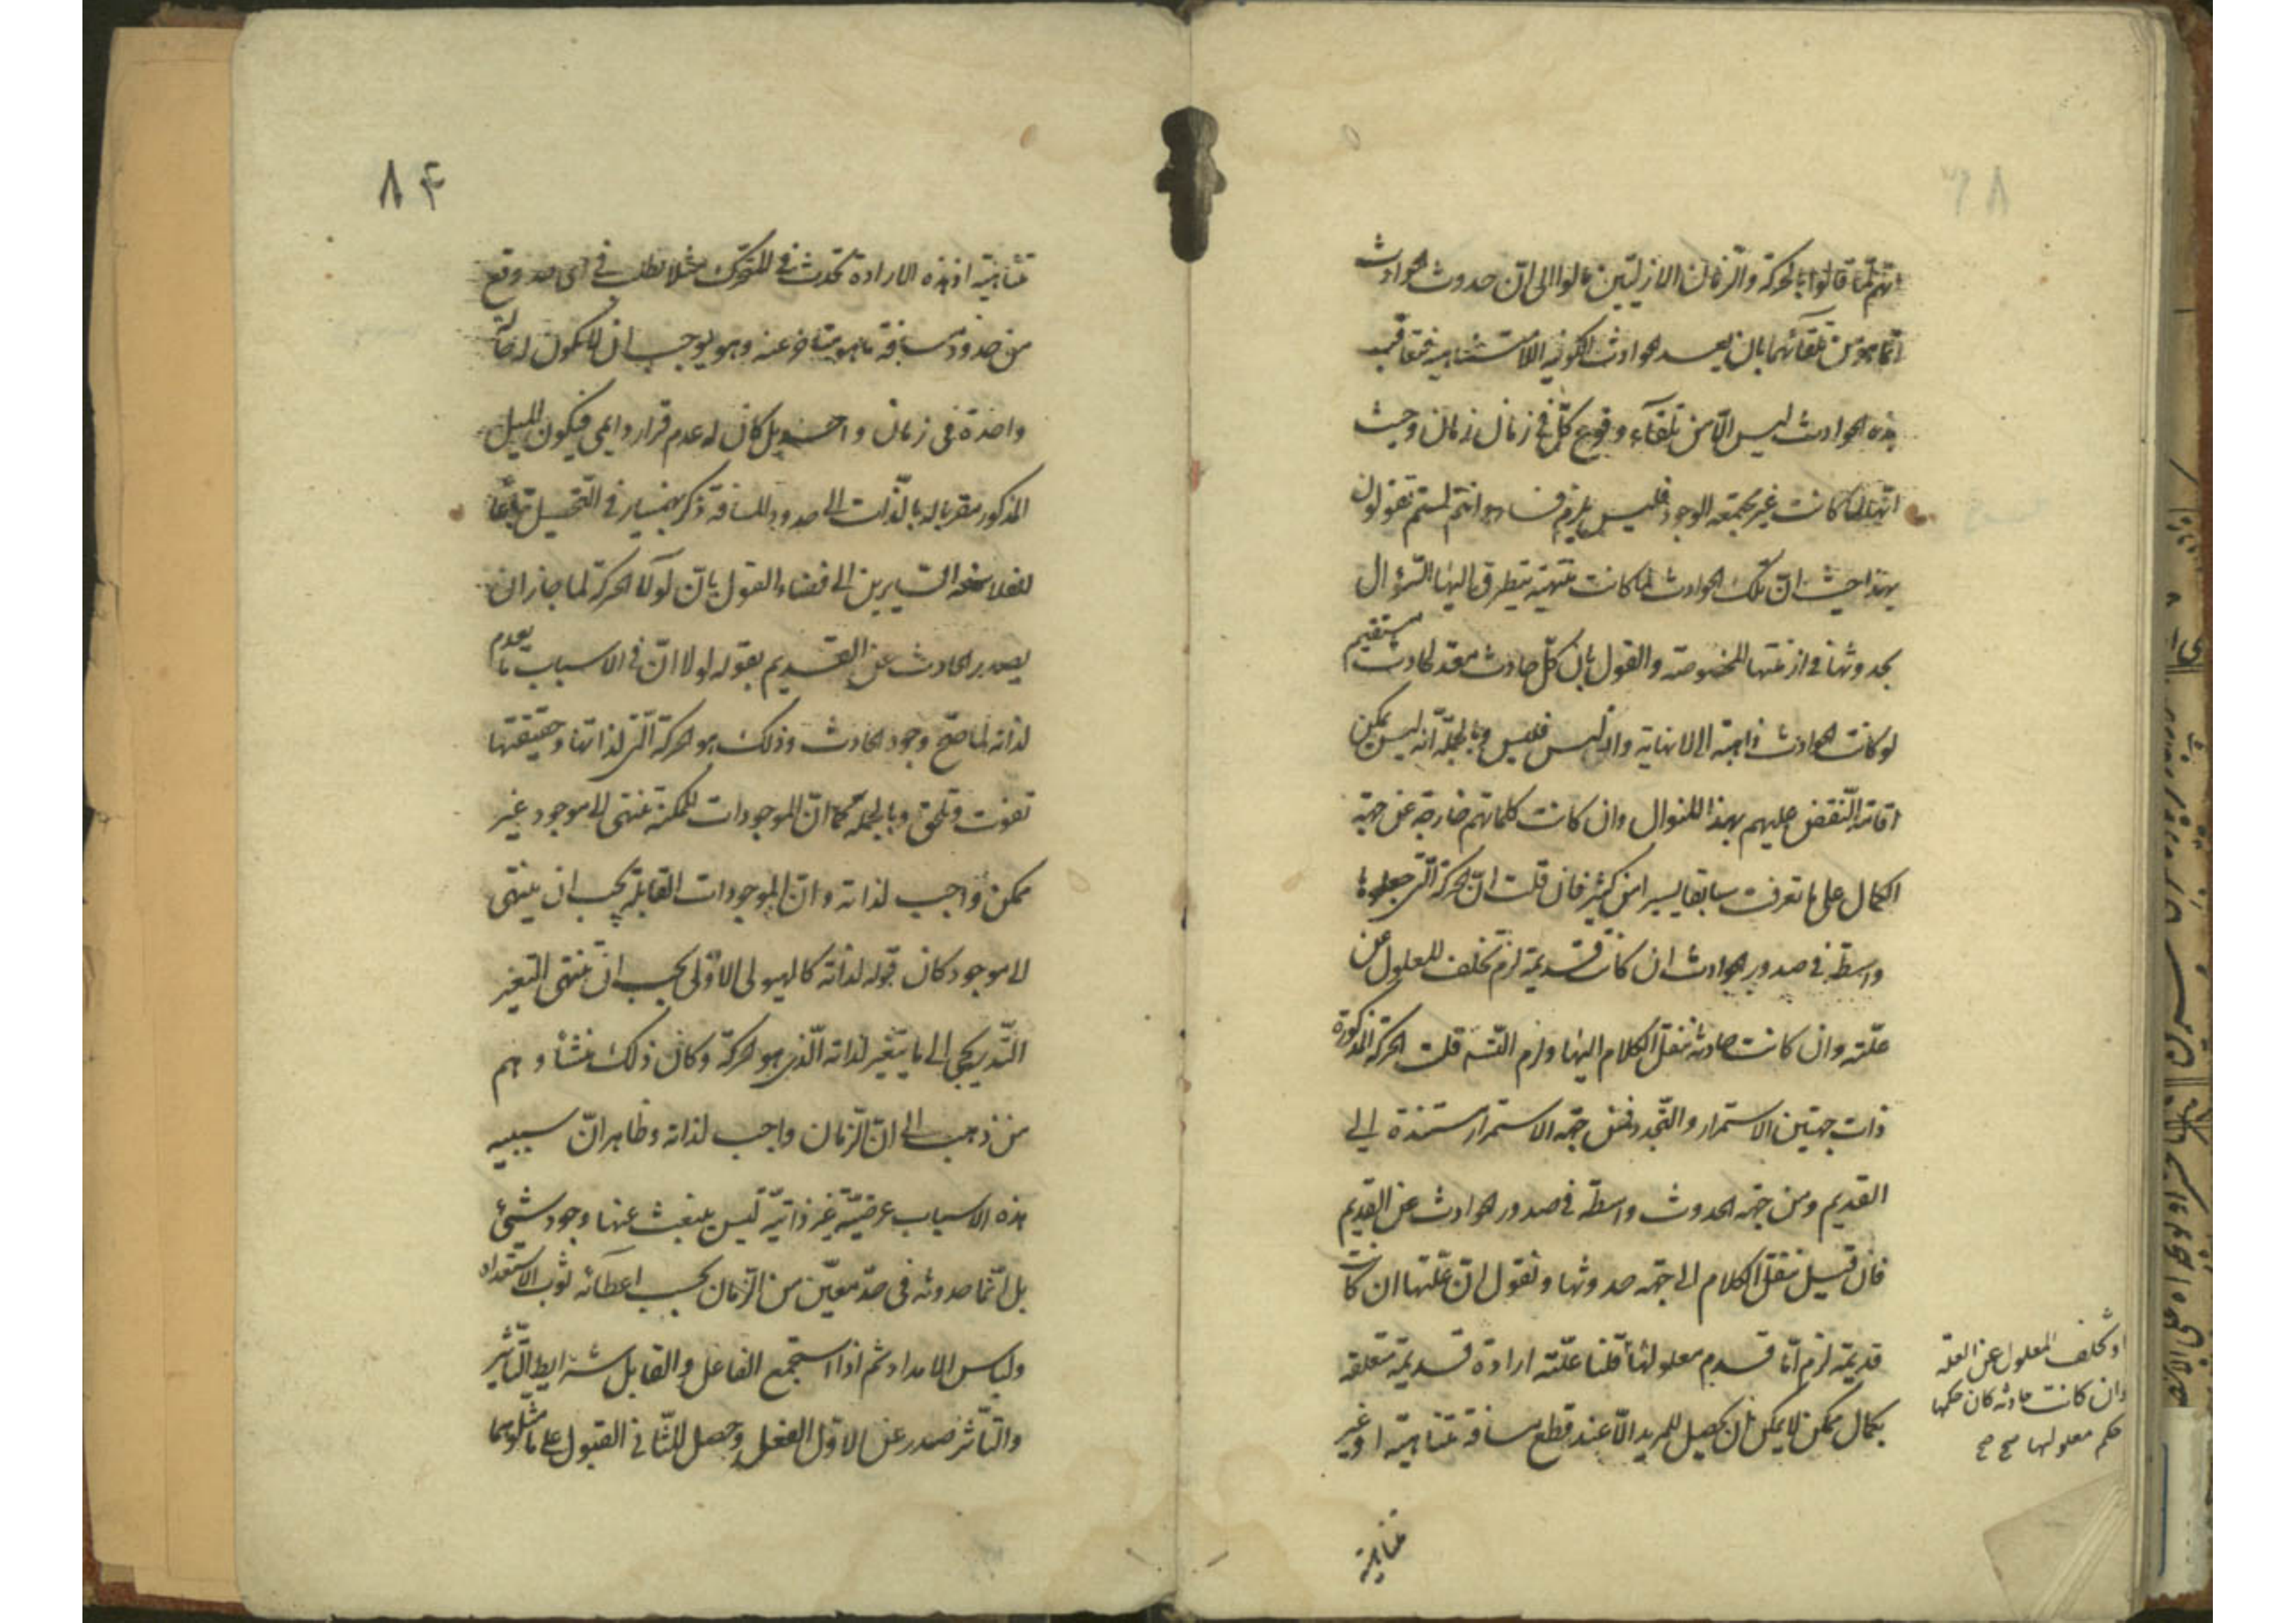 انهم لما قالوا بالحركة والزمان الازليين مالوا الى ان حدوث الحوادث
انما هو من تلقائهما بان يعد الحوادث الكونية اللامتناهية فتعاقب
هذه الحوادث ليس الا من تلقآء وقوع كل في زمان زمان وحيث
انها لما كانت غير مجتمعة الوجود فليس يلزم فساد وانتم لستم تقولون
بهذا حيث ان تلك الحوادث لما كانت منتهية يتطرق اليها السؤال
بحدوثها في ازمنتها المخصوصة والقول بان كل حادث معد لحادث مستقيم
لو كانت الحوادث ذاهبة الى لانهاية واذ ليس فليس وبالجملة انه ليس يمكن
اقامة النقض عليهم بهذا المنوال وان كانت كلماتهم خارجة عن جهة
الكمال على ما تعرفت سابقا يسيرا من كثير فان قلت ان الحركة التي جعلوها
واسطة في صدور الحوادث ان كانت قديمة لزم تخلف المعلول عن
علته وان كانت حادثة ننقل الكلام اليها ولزم التسـ قلت الحركة المذكورة
ذات جهتين الاستمرار والتجدد فمن جهة الاستمرار مستندة الى
القديم ومن جهة الحدوث واسطة في صدور الحوادث عن القديم
فان قيل ننقل الكلام الى جهة حدوثها ونقول ان علتها ان كانت
قديمة لزم اما قدم معلولها قلنا علته ارادة قديمة متعلقة
بكمال ممكن لا يمكن ان يحصل للمريد الا عند قطع مسافة متناهية او غير
او تخلف المعلول عن العلة
وان كانت حادثة كان حكمها
حكم معلولها صح صح
متناهية
٨٤
متناهية اذ هذه الارادة تحدث في المتحرك مثلا تطلب في اى حد وقع
من حدود مسافة ما هو متاخر عنه وهو يوجب ان لا يكون له حالة
واحدة في زمان واحد بل كان له عدم قرار دايمى فيكون الميل
المذكور مقربا له بالذات الى حدود المسافة ذكر بهمنيار في التحصيل تباعا
للفلاسفة السايرين الى فضاء القول بان لولا الحركة لما جاز ان
يصدر الحادث عن القديم بقوله لولا ان في الاسباب ما يعدم
لذاته لما صح وجود الحادث وذلك هو الحركة التي لذاتها وحقيقتها
تفوت وتلحق وبالجملة كما ان الموجودات الممكنة تنتهى الى موجود غير
ممكن واجب لذاته وان الموجودات القابلة يجب ان ينتهى
الى موجود كان قبوله لذاته كالهيولى الاولى يجب ان ينتهى التغير
التدريجى الى ما يتغير لذاته الذى هو الحركة وكان ذلك منشأ وهم
من ذهب الى ان الزمان واجب لذاته وظاهر ان سببية
هذه الاسباب عرضية غير ذاتية ليس ينبعث عنها وجود شيئ
بل انما حدوثه في حد معين من الزمان بحسب اعطائه ثوب الاستعداد
ولباس الامداد ثم اذا استجمع الفاعل والقابل شرايط التأثير
والتأثر صدر عن الاول الفعل وحصل للثاني القبول على ما مثلوهما